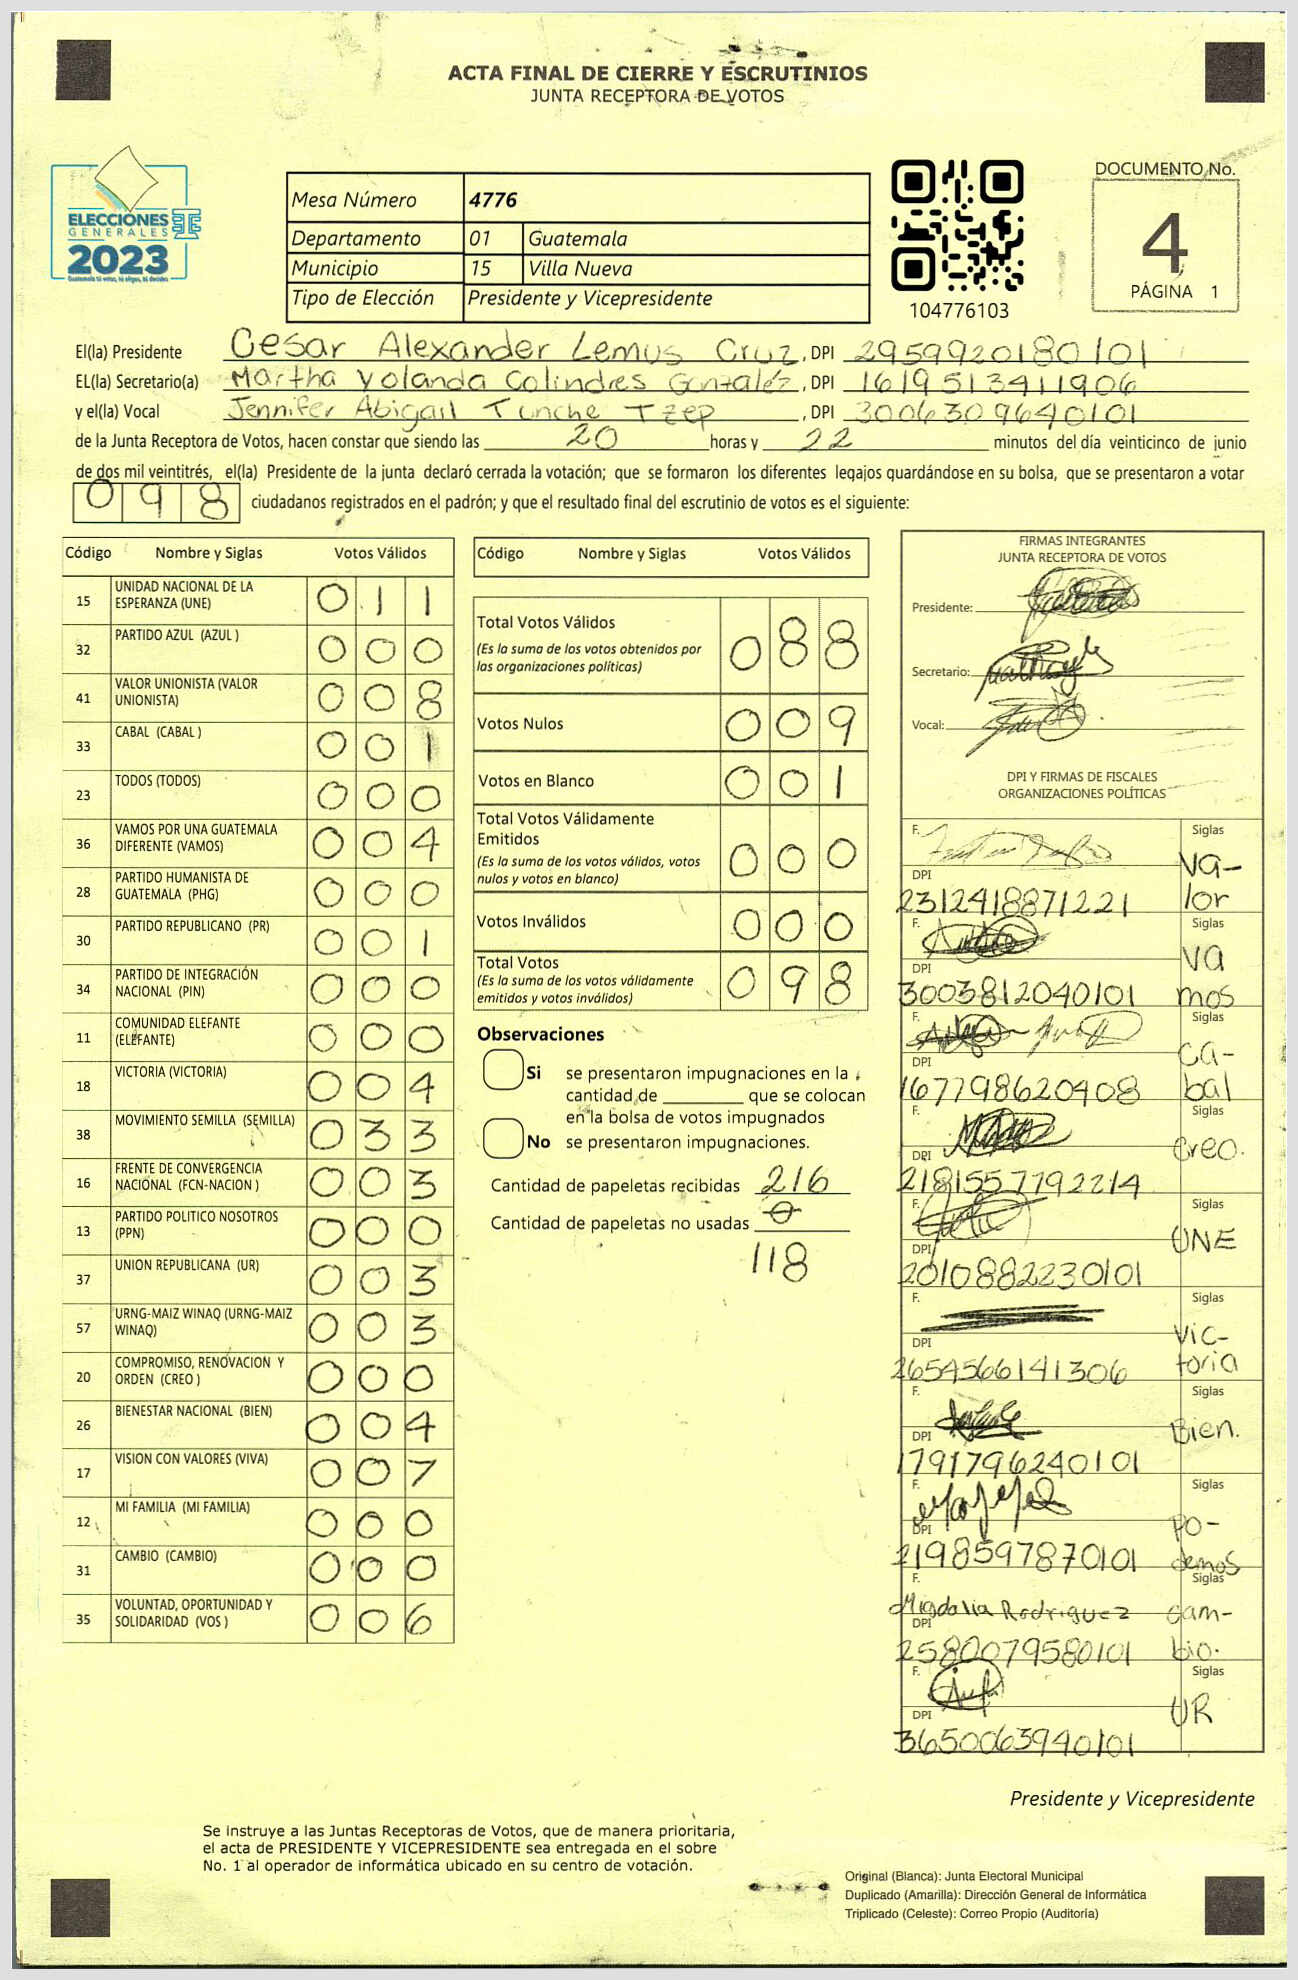 ACTA FINAL DE CIERRE Y ESCRUTINIOS
JUNTA RECEPTORA DE VOTOS
ELECCIONES
GENERALES
2023
Mesa Número 4776
Departamento 01 Guatemala
Municipio 15 Villa Nueva
Tipo de Elección Presidente y Vicepresidente
104776103
DOCUMENTO No.
4
PÁGINA 1
El(la) Presidente Cesar Alexander Lemus Cruz, DPI 2959920180101
EL(la) Secretario(a) Martha Yolanda Colindres Gonzaléz, DPI 1619513411906
y el(la) Vocal Jennifer Abigail Tunche Tzep, DPI 3006309640101
de la Junta Receptora de Votos, hacen constar que siendo las 20 horas y 22 minutos del día veinticinco de junio
de dos mil veintitrés, el(la) Presidente de la junta declaró cerrada la votación; que se formaron los diferentes legajos guardándose en su bolsa, que se presentaron a votar
098 ciudadanos registrados en el padrón; y que el resultado final del escrutinio de votos es el siguiente:
Código Nombre y Siglas Votos Válidos
15 UNIDAD NACIONAL DE LA ESPERANZA (UNE) 0 1 1
32 PARTIDO AZUL (AZUL ) 0 0 0
41 VALOR UNIONISTA (VALOR UNIONISTA) 0 0 8
33 CABAL (CABAL ) 0 0 1
23 TODOS (TODOS) 0 0 0
36 VAMOS POR UNA GUATEMALA DIFERENTE (VAMOS) 0 0 4
28 PARTIDO HUMANISTA DE GUATEMALA (PHG) 0 0 0
30 PARTIDO REPUBLICANO (PR) 0 0 1
34 PARTIDO DE INTEGRACIÓN NACIONAL (PIN) 0 0 0
11 COMUNIDAD ELEFANTE (ELEFANTE) 0 0 0
18 VICTORIA (VICTORIA) 0 0 4
38 MOVIMIENTO SEMILLA (SEMILLA) 0 3 3
16 FRENTE DE CONVERGENCIA NACIONAL (FCN-NACION ) 0 0 3
13 PARTIDO POLITICO NOSOTROS (PPN) 0 0 0
37 UNION REPUBLICANA (UR) 0 0 3
57 URNG-MAIZ WINAQ (URNG-MAIZ WINAQ) 0 0 3
20 COMPROMISO, RENOVACION Y ORDEN (CREO ) 0 0 0
26 BIENESTAR NACIONAL (BIEN) 0 0 4
17 VISION CON VALORES (VIVA) 0 0 7
12 MI FAMILIA (MI FAMILIA) 0 0 0
31 CAMBIO (CAMBIO) 0 0 0
35 VOLUNTAD, OPORTUNIDAD Y SOLIDARIDAD (VOS ) 0 0 6
Código Nombre y Siglas Votos Válidos
Total Votos Válidos 0 8 8
(Es la suma de los votos obtenidos por
las organizaciones políticas)
Votos Nulos 0 0 9
Votos en Blanco 0 0 1
Total Votos Válidamente
Emitidos 0 0 0
(Es la suma de los votos válidos, votos
nulos y votos en blanco)
Votos Inválidos 0 0 0
Total Votos 0 9 8
(Es la suma de los votos válidamente
emitidos y votos inválidos)
Observaciones
Si se presentaron impugnaciones en la
cantidad de ________ que se colocan
en la bolsa de votos impugnados
No se presentaron impugnaciones.
Cantidad de papeletas recibidas 216
Cantidad de papeletas no usadas 0
118
FIRMAS INTEGRANTES
JUNTA RECEPTORA DE VOTOS
Presidente:
Secretario:
Vocal:
DPI Y FIRMAS DE FISCALES
ORGANIZACIONES POLÍTICAS
F. Siglas
DPI Va-
2312418871221 lor
F. Siglas
DPI Va
3003812040101 mos
F. Siglas
DPI Ca-
167798620408 bal
F. Siglas
DPI Creo.
2181557792214
F. Siglas
DPI UNE
2010882230101
F. Siglas
DPI Vic-
2654566141306 toria
F. Siglas
DPI Bien.
1791796240101
F. Siglas
DPI Po-
2198597870101 demos
F. Siglas
Migdalia Rodriguez Cam-
DPI
2580079580101 bio.
F. Siglas
DPI UR
3650063940101
Presidente y Vicepresidente
Se instruye a las Juntas Receptoras de Votos, que de manera prioritaria,
el acta de PRESIDENTE Y VICEPRESIDENTE sea entregada en el sobre
No. 1 al operador de informática ubicado en su centro de votación.
Original (Blanca): Junta Electoral Municipal
Duplicado (Amarilla): Dirección General de Informática
Triplicado (Celeste): Correo Propio (Auditoría)